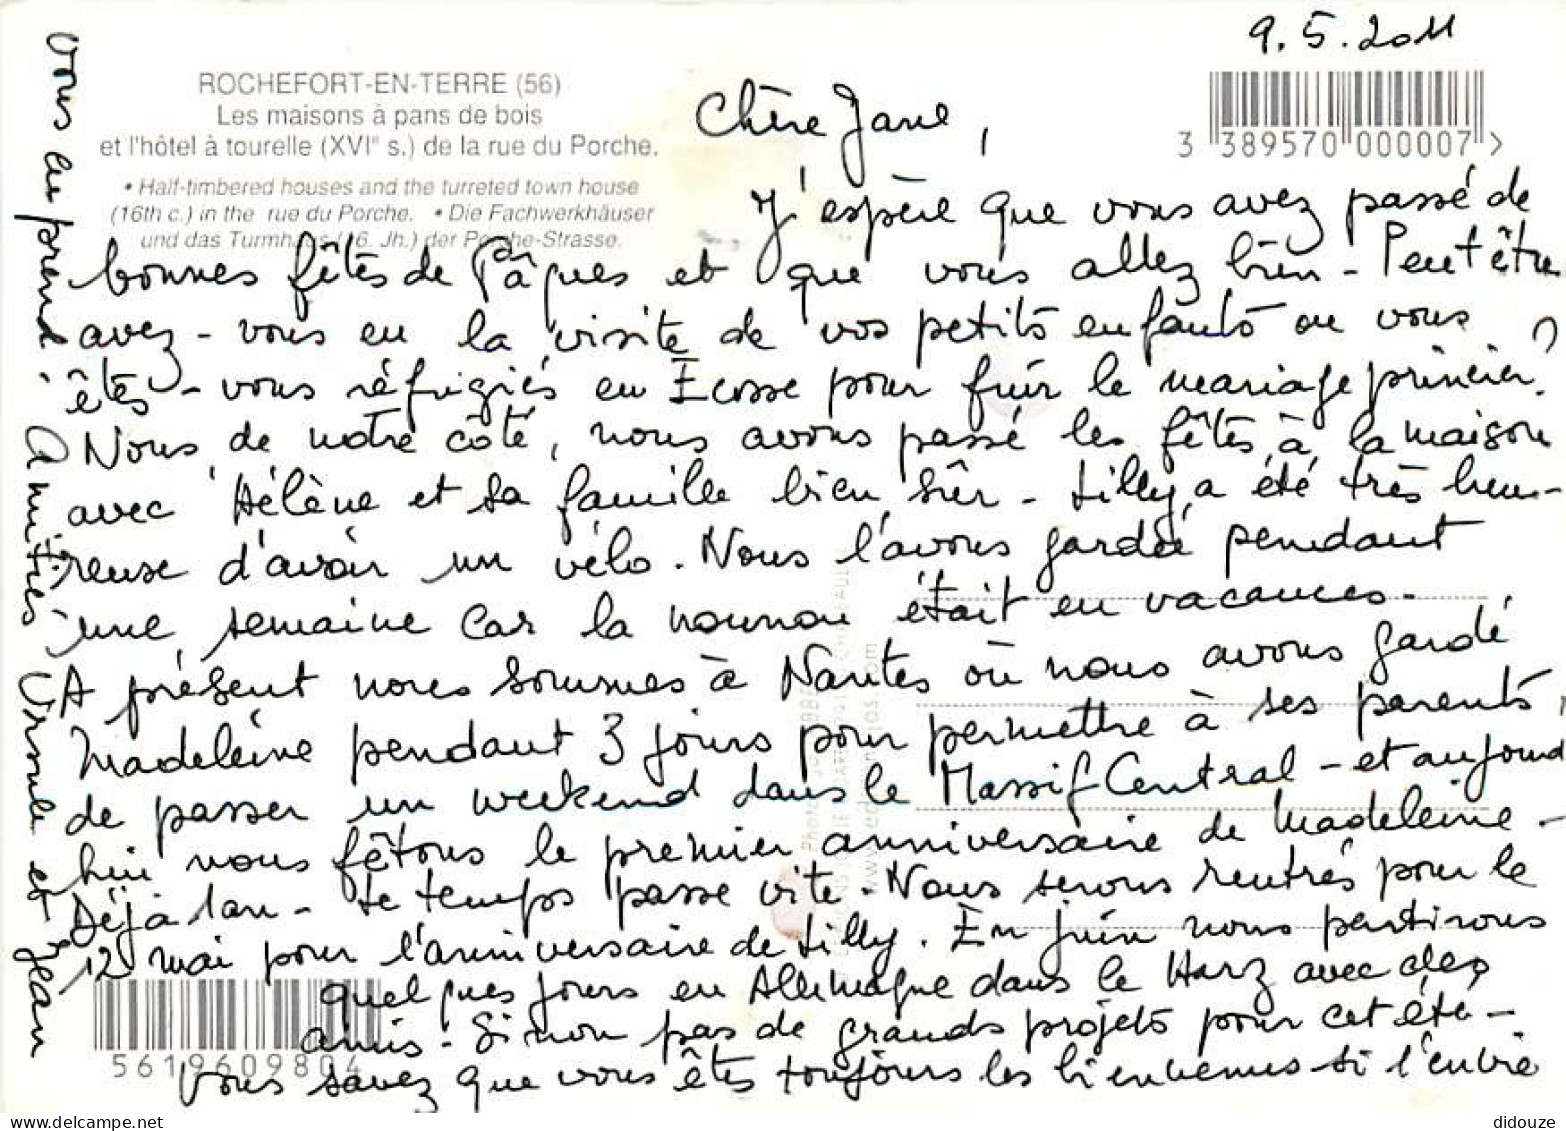 9.5.2011
ROCHEFORT-EN-TERRE (56)
Les maisons à pans de bois
et l'hôtel à tourelle (XVIe s.) de la rue du Porche.
• Half-timbered houses and the turreted town house
(16th c.) in the rue du Porche. • Die Fachwerkhäuser
und das Turmhaus (16. Jh.) der Porche-Strasse.
3 389570 000007 >
Chère Jane,
J'espère que vous avez passé de
bonnes fêtes de Pâques et que vous allez bien - Peut être
avez-vous eu la visite de vos petits enfants ou vous
êtes-vous réfugiés en Écosse pour fuir le mariage princier ?
Nous, de notre côté, nous avons passé les fêtes à la maison
avec Hélène et sa famille bien sûr - Lilly a été très heu-
reuse d'avoir un vélo. Nous l'avons gardée pendant
une semaine car la nounou était en vacances.
A présent nous sommes à Nantes où nous avons gardé
Madeleine pendant 3 jours pour permettre à ses parents,
de passer un weekend dans le Massif Central - et aujourd
hui nous fêtons le premier anniversaire de Madeleine -
Déjà 1 an - Le temps passe vite. Nous serons rentrés pour le
12 mai pour l'anniversaire de Lilly. En juin nous partirons
quelques jours en Allemagne dans le Harz avec des
amis - Sinon pas de grands projets pour cet été -
Vous savez que vous êtes toujours les bienvenus si l'envie
vous en prend.
Amitiés Ursule et Jean
5619609804
didouze